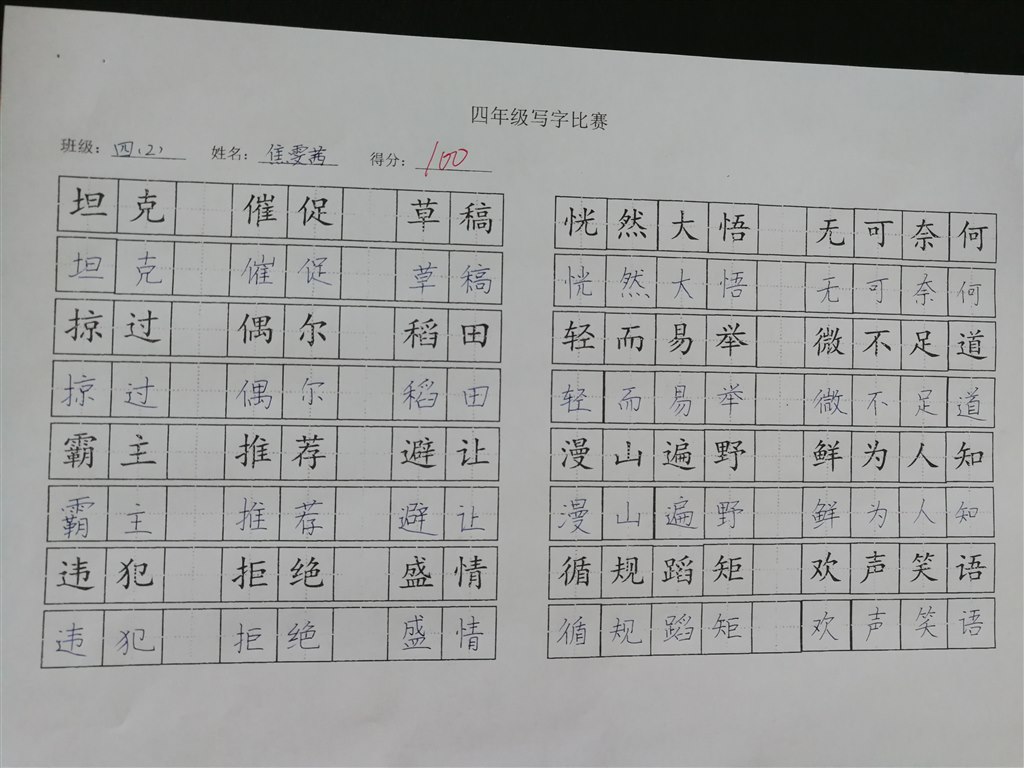 四年级写字比赛
班级：四（2） 姓名：隹雯茜 得分：100
坦克 催促 草稿
坦克 催促 草稿
掠过 偶尔 稻田
掠过 偶尔 稻田
霸主 推荐 避让
霸主 推荐 避让
违犯 拒绝 盛情
违犯 拒绝 盛情
恍然大悟 无可奈何
恍然大悟 无可奈何
轻而易举 微不足道
轻而易举 微不足道
漫山遍野 鲜为人知
漫山遍野 鲜为人知
循规蹈矩 欢声笑语
循规蹈矩 欢声笑语